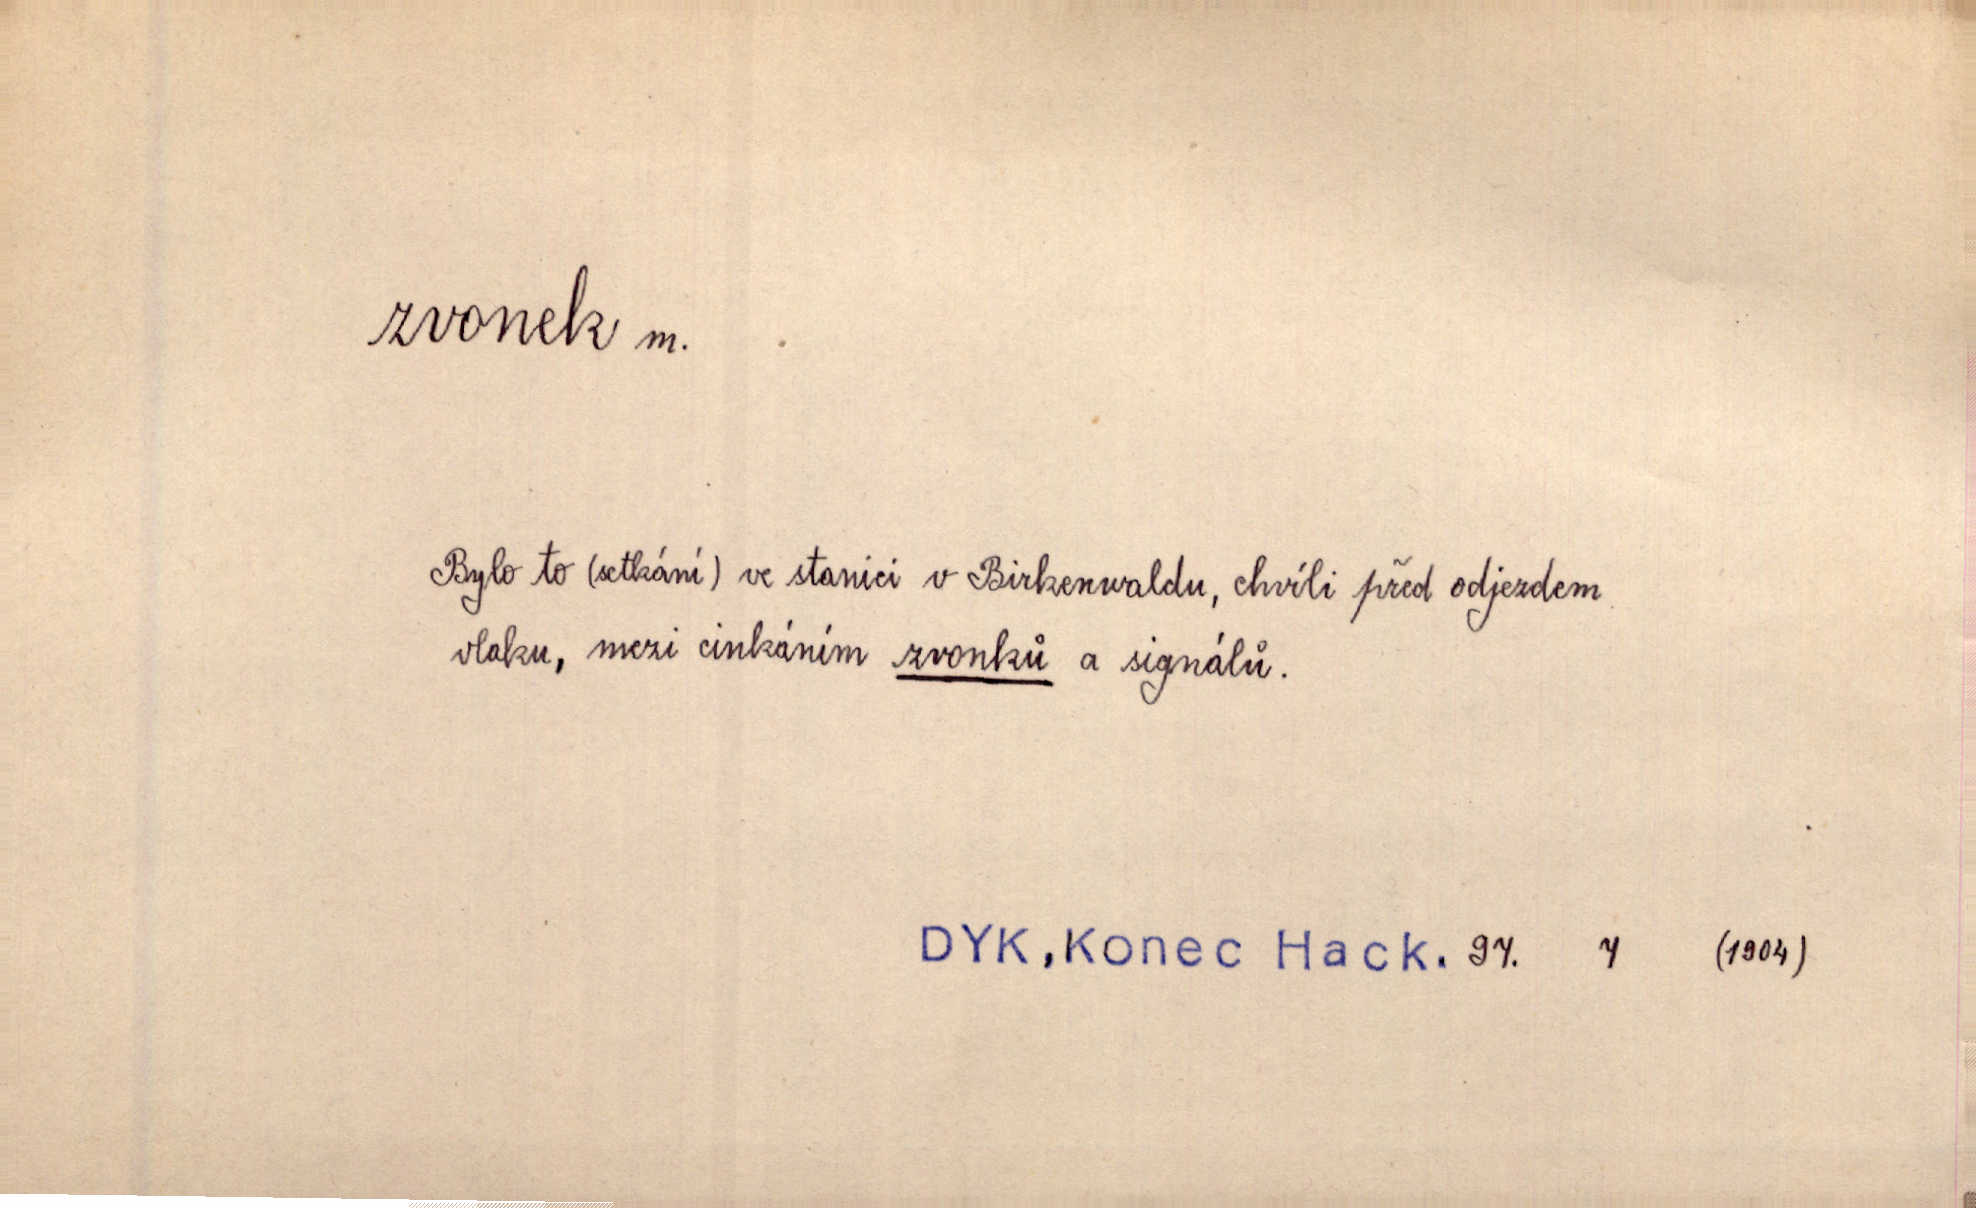 zvonek m.
Bylo to (setkání) ve stanici v Birkenwaldu, chvíli před odjezdem
vlaku, mezi cinkáním zvonků a signálů.
DYK, Konec Hack. 97. 7 (1904)